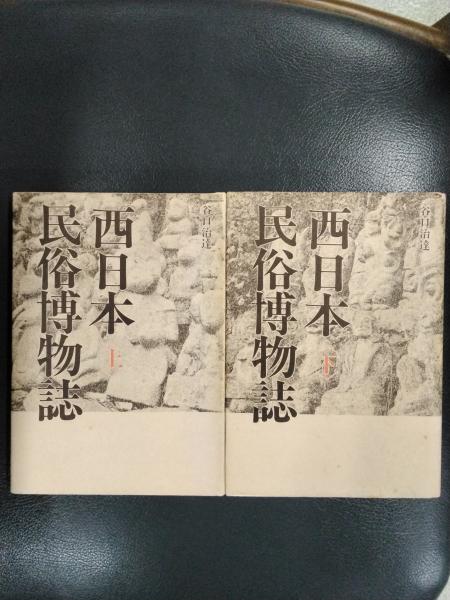 谷口治達
西日本
上
民俗博物誌
谷口治達
西日本
下
民俗博物誌